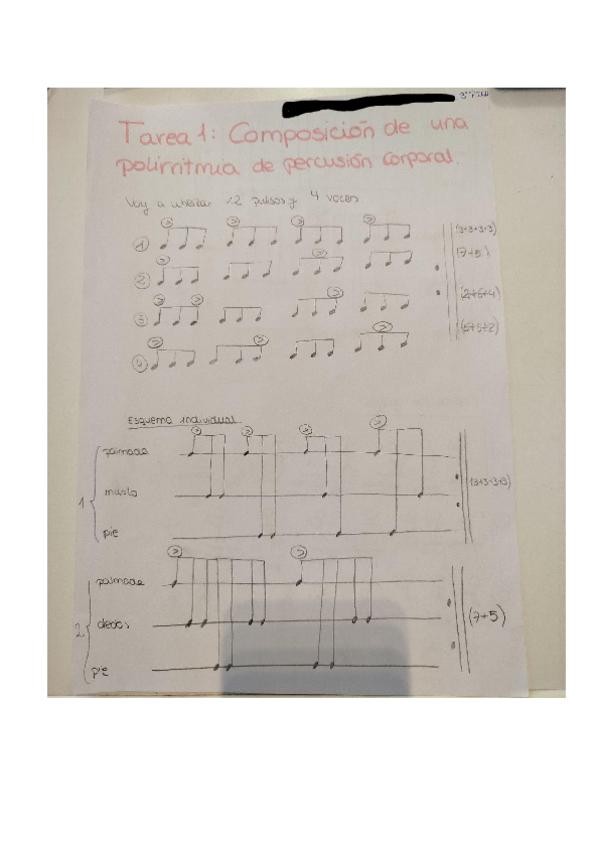 Tarea 1: Composición de una
polirritmia de percusión corporal.
Voy a utilizar 12 pulsos y 4 voces
1 (3+3+3+3)
2 (7+5)
3 (2+6+4)
4 (5+5+2)
Esquema individual
1
palmada
muslo (3+3+3+3)
pie
2
palmada
dedos (7+5)
pie